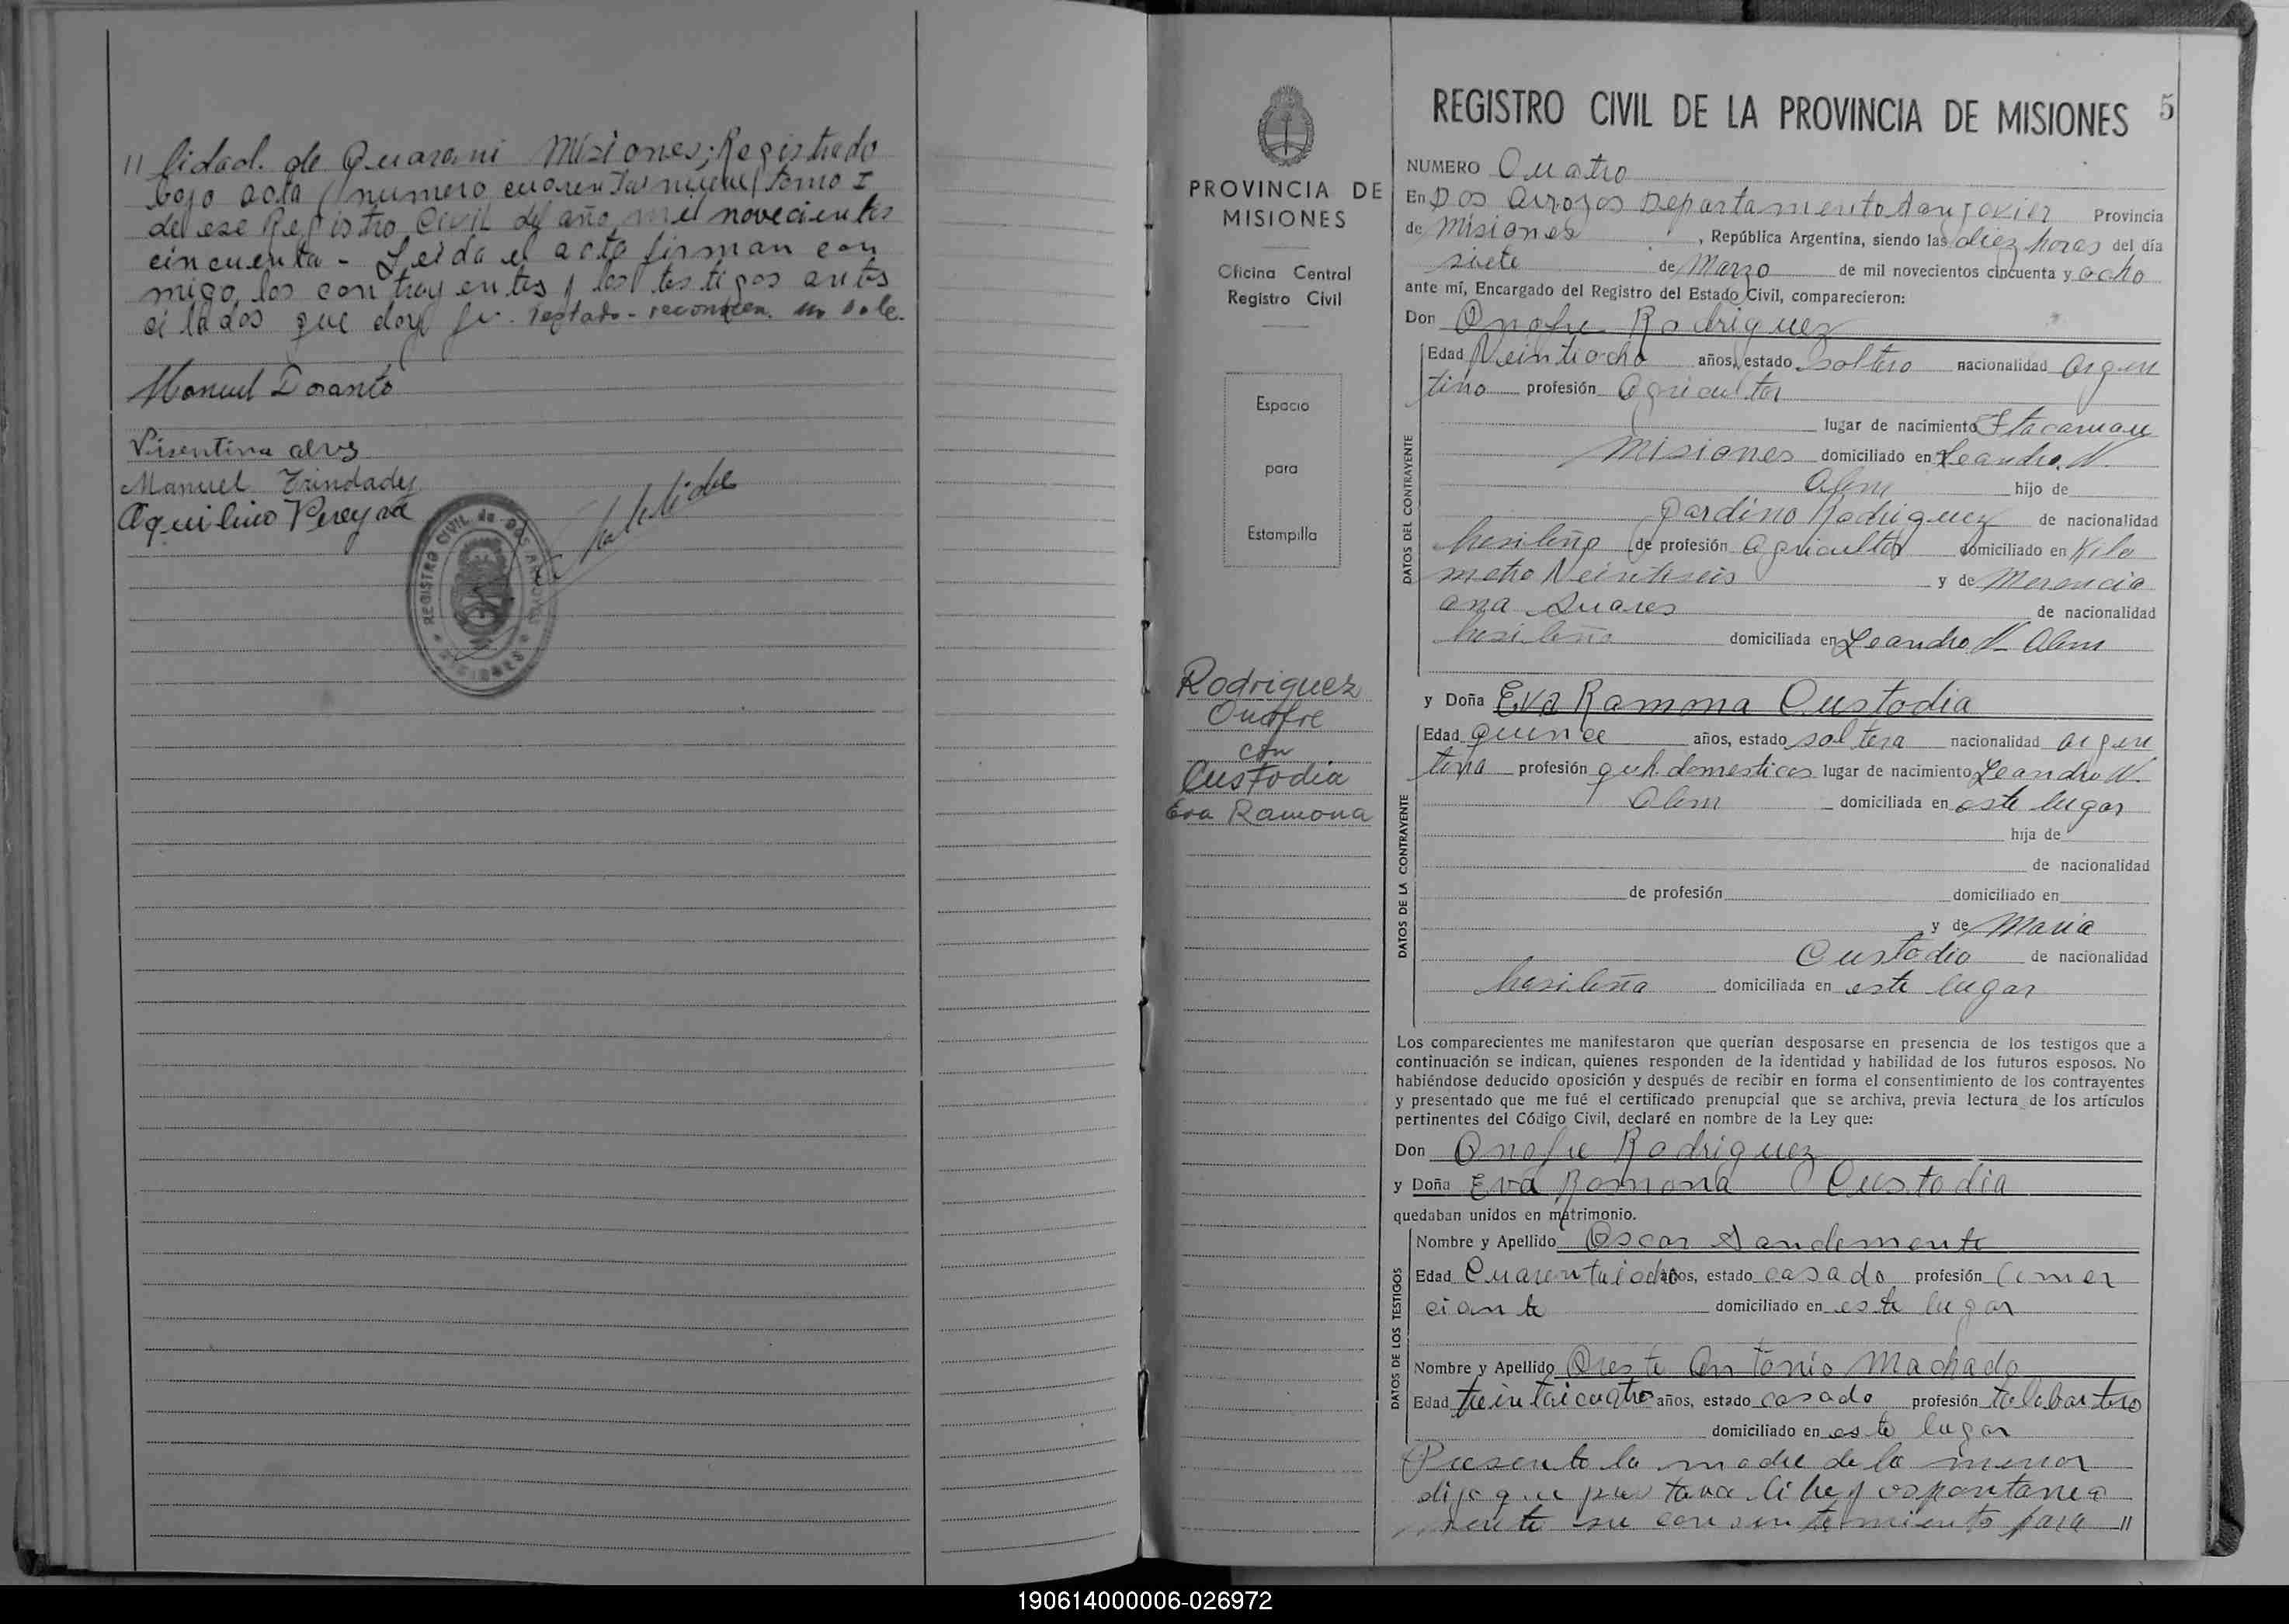 // lidad. de Guarani Misiones; Registrado
bajo acta numero cuarentainueve tomo I
de ese Registro Civil del año mil novecientos
cincuenta - Leida el acta firman con
migo, los contrayentes y los testigos antes
citados que doy fe. Testado - reconocen. no vale.
Manuel Dosanto
Visentina alves
Manuel Trindade
Aquilino Pereyra
REGISTRO CIVIL de DOS ARROYOS
MISIONES
PROVINCIA DE
MISIONES
Oficina Central
Registro Civil
Espacio
para
Estampilla
Rodriguez
Onofre
con
Custodia
Eva Ramona
REGISTRO CIVIL DE LA PROVINCIA DE MISIONES 5
NUMERO Cuatro
En Dos Arroyos Departamento San Javier Provincia
de Misiones, República Argentina, siendo las diez horas del día
siete de Marzo de mil novecientos cincuenta y ocho
ante mí, Encargado del Registro del Estado Civil, comparecieron:
Don Onofre Rodriguez
DATOS DEL CONTRAYENTE
Edad Veintiocho años, estado soltero nacionalidad argen
tino profesión Agricultor
lugar de nacimiento Itacaruau
Misiones domiciliado en Leandro N.
Alem hijo de
Gardino Rodriguez de nacionalidad
brasileño de profesión Agricultor domiciliado en Kilo
metro Veintiseis y de Merencia
ana Suares de nacionalidad
brasileña domiciliada en Leandro N Alem
y Doña Eva Ramona Custodia
DATOS DE LA CONTRAYENTE
Edad quince años, estado soltera nacionalidad argen
tina profesión queh. domesticos lugar de nacimiento Leandro N.
Alem domiciliada en este lugar
hija de
de nacionalidad
de profesión domiciliado en
y de Maria
Custodio de nacionalidad
brasileña domiciliada en este lugar
Los comparecientes me manifestaron que querían desposarse en presencia de los testigos que a
continuación se indican, quienes responden de la identidad y habilidad de los futuros esposos. No
habiéndose deducido oposición y después de recibir en forma el consentimiento de los contrayentes
y presentado que me fué el certificado prenupcial que se archiva, previa lectura de los artículos
pertinentes del Código Civil, declaré en nombre de la Ley que:
Don Onofre Rodriguez
y Doña Eva Ramona Custodia
quedaban unidos en matrimonio.
DATOS DE LOS TESTIGOS
Nombre y Apellido Oscar Sandemente
Edad Cuarentaiocho años, estado casado profesión Comer
ciante domiciliado en este lugar
Nombre y Apellido Oreste Antonio Machado
Edad treintaicuatro años, estado casado profesión talabartero
domiciliado en este lugar
Presente la madre de la menor
dijo que prestava libre y espontanea
mente su consentimiento para //
190614000006-026972